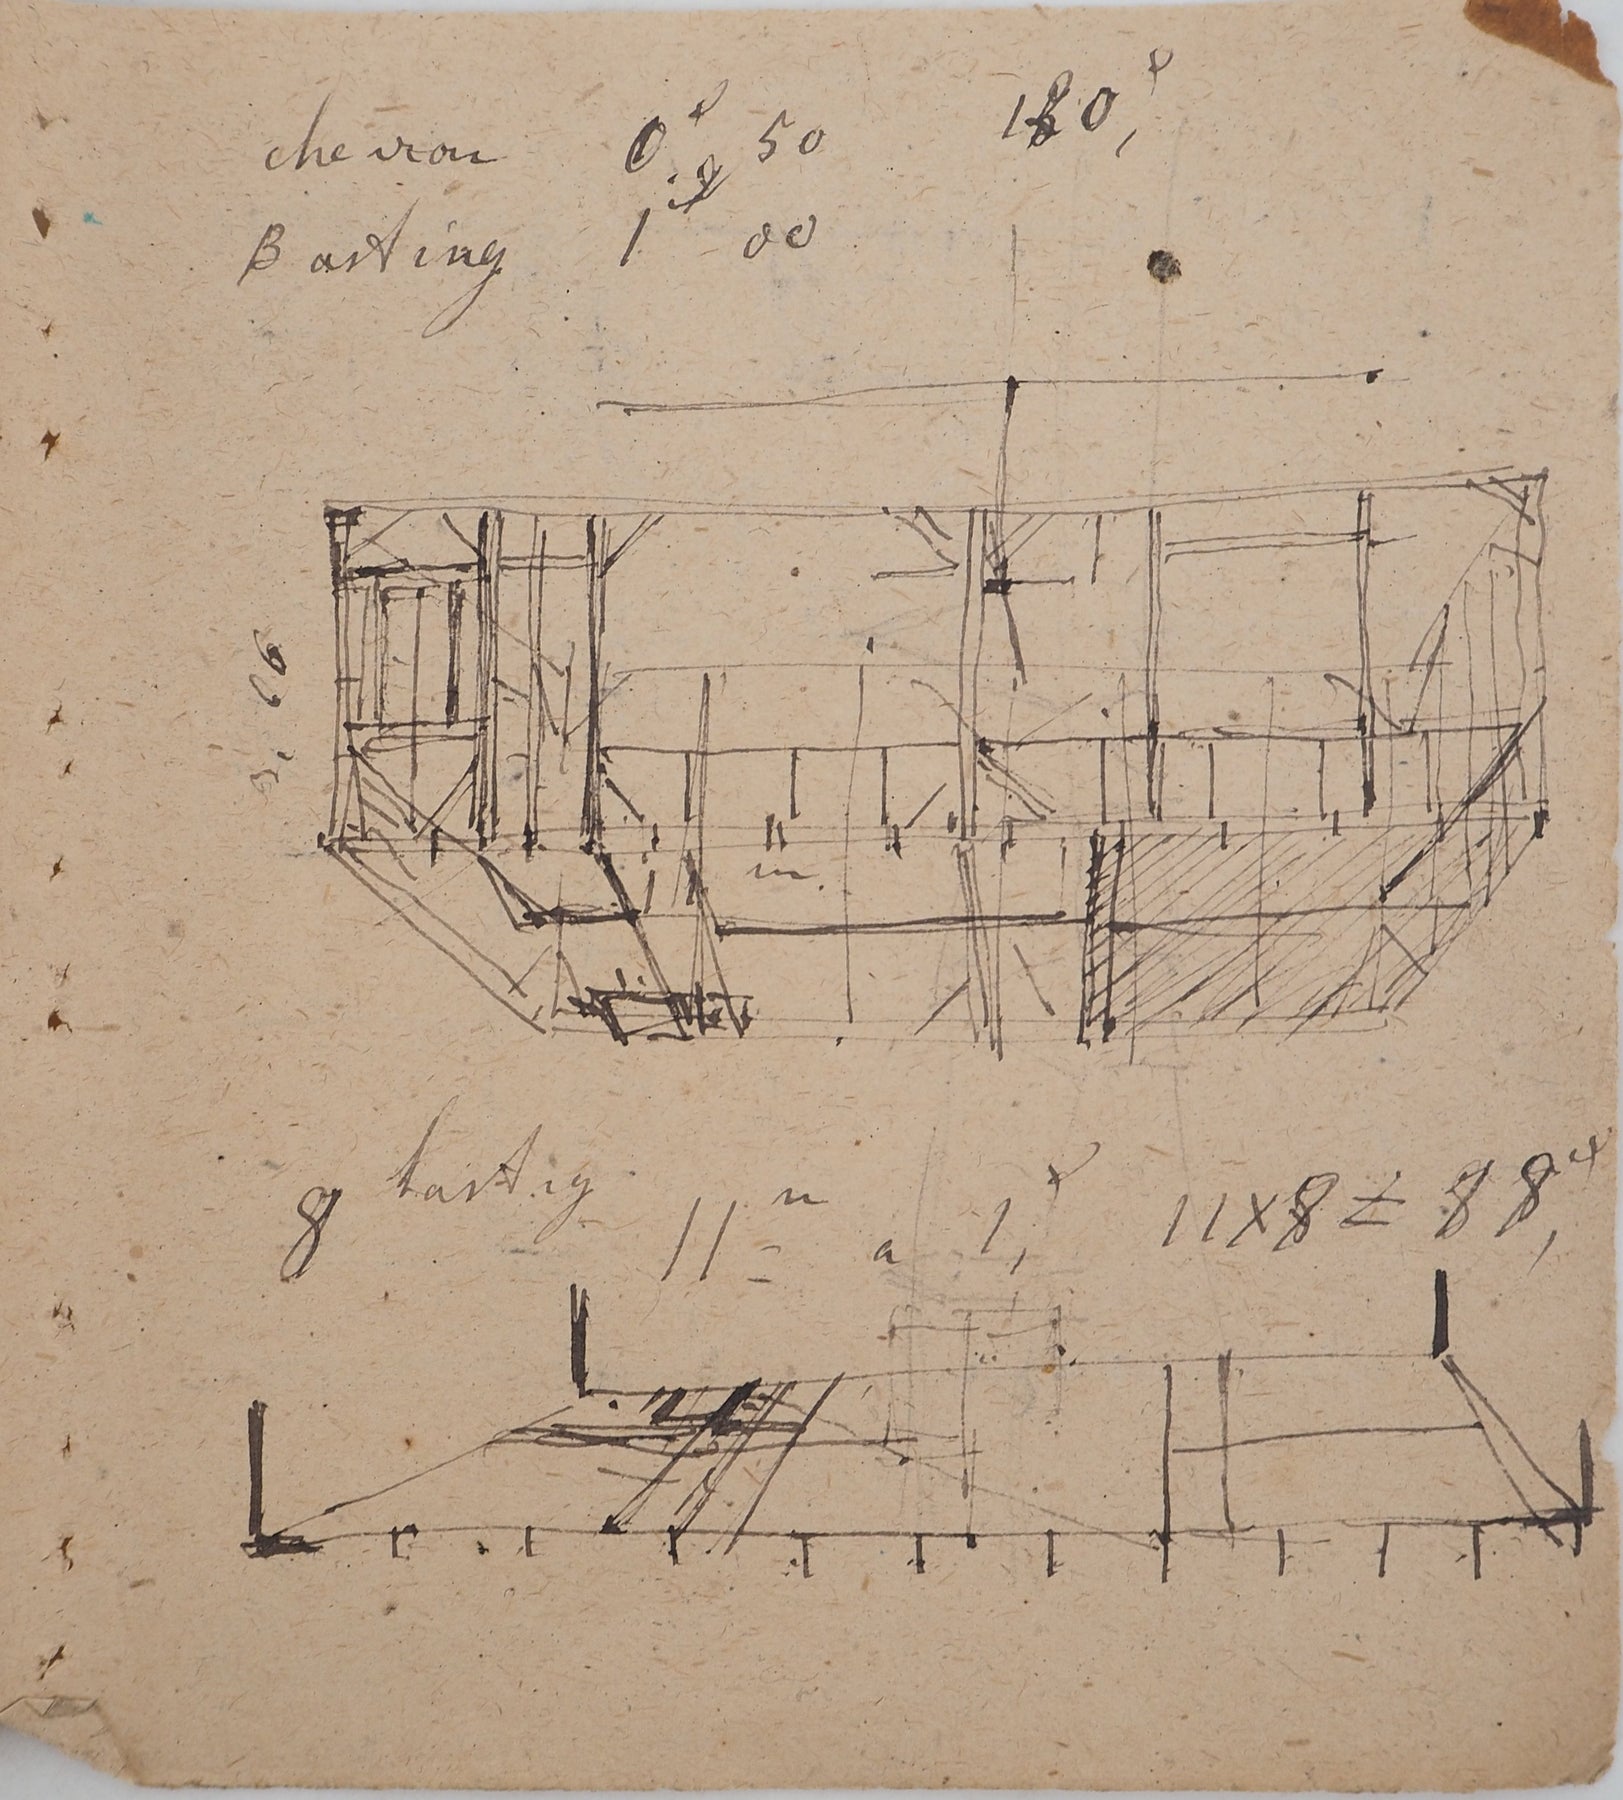 chevron 0,f 50 180,f
Basting 1f 00
3,66
m.
8 bastig 11m a 1,f 11x8 = 88,f